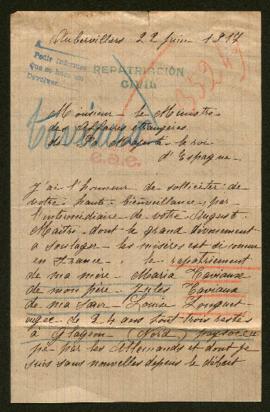 Aubervilliers 22 Juin 1917
Pedir informes
que se haya de
devolver
REPATRIACIÓN
CIVIL
Monsieur le Ministre
des Affaires étrangères
de Sa Majesté le roi
d'Espagne.
e.a.e.
J'ai l'honneur de solliciter de
votre haute bienveillance, par
l'intermédiaire de votre August
Maître dont le grand dévouement
à soulager les misères est si connu
en France, le repatriement
de ma mère Maria Taviaux
de mon père Jules Taviaux
de ma sœur Louisa
agée de 24 ans tout trois restés
à Glageon (Nord) pays occu
pé par les Allemands et dont je
suis sans nouvelles depuis le début